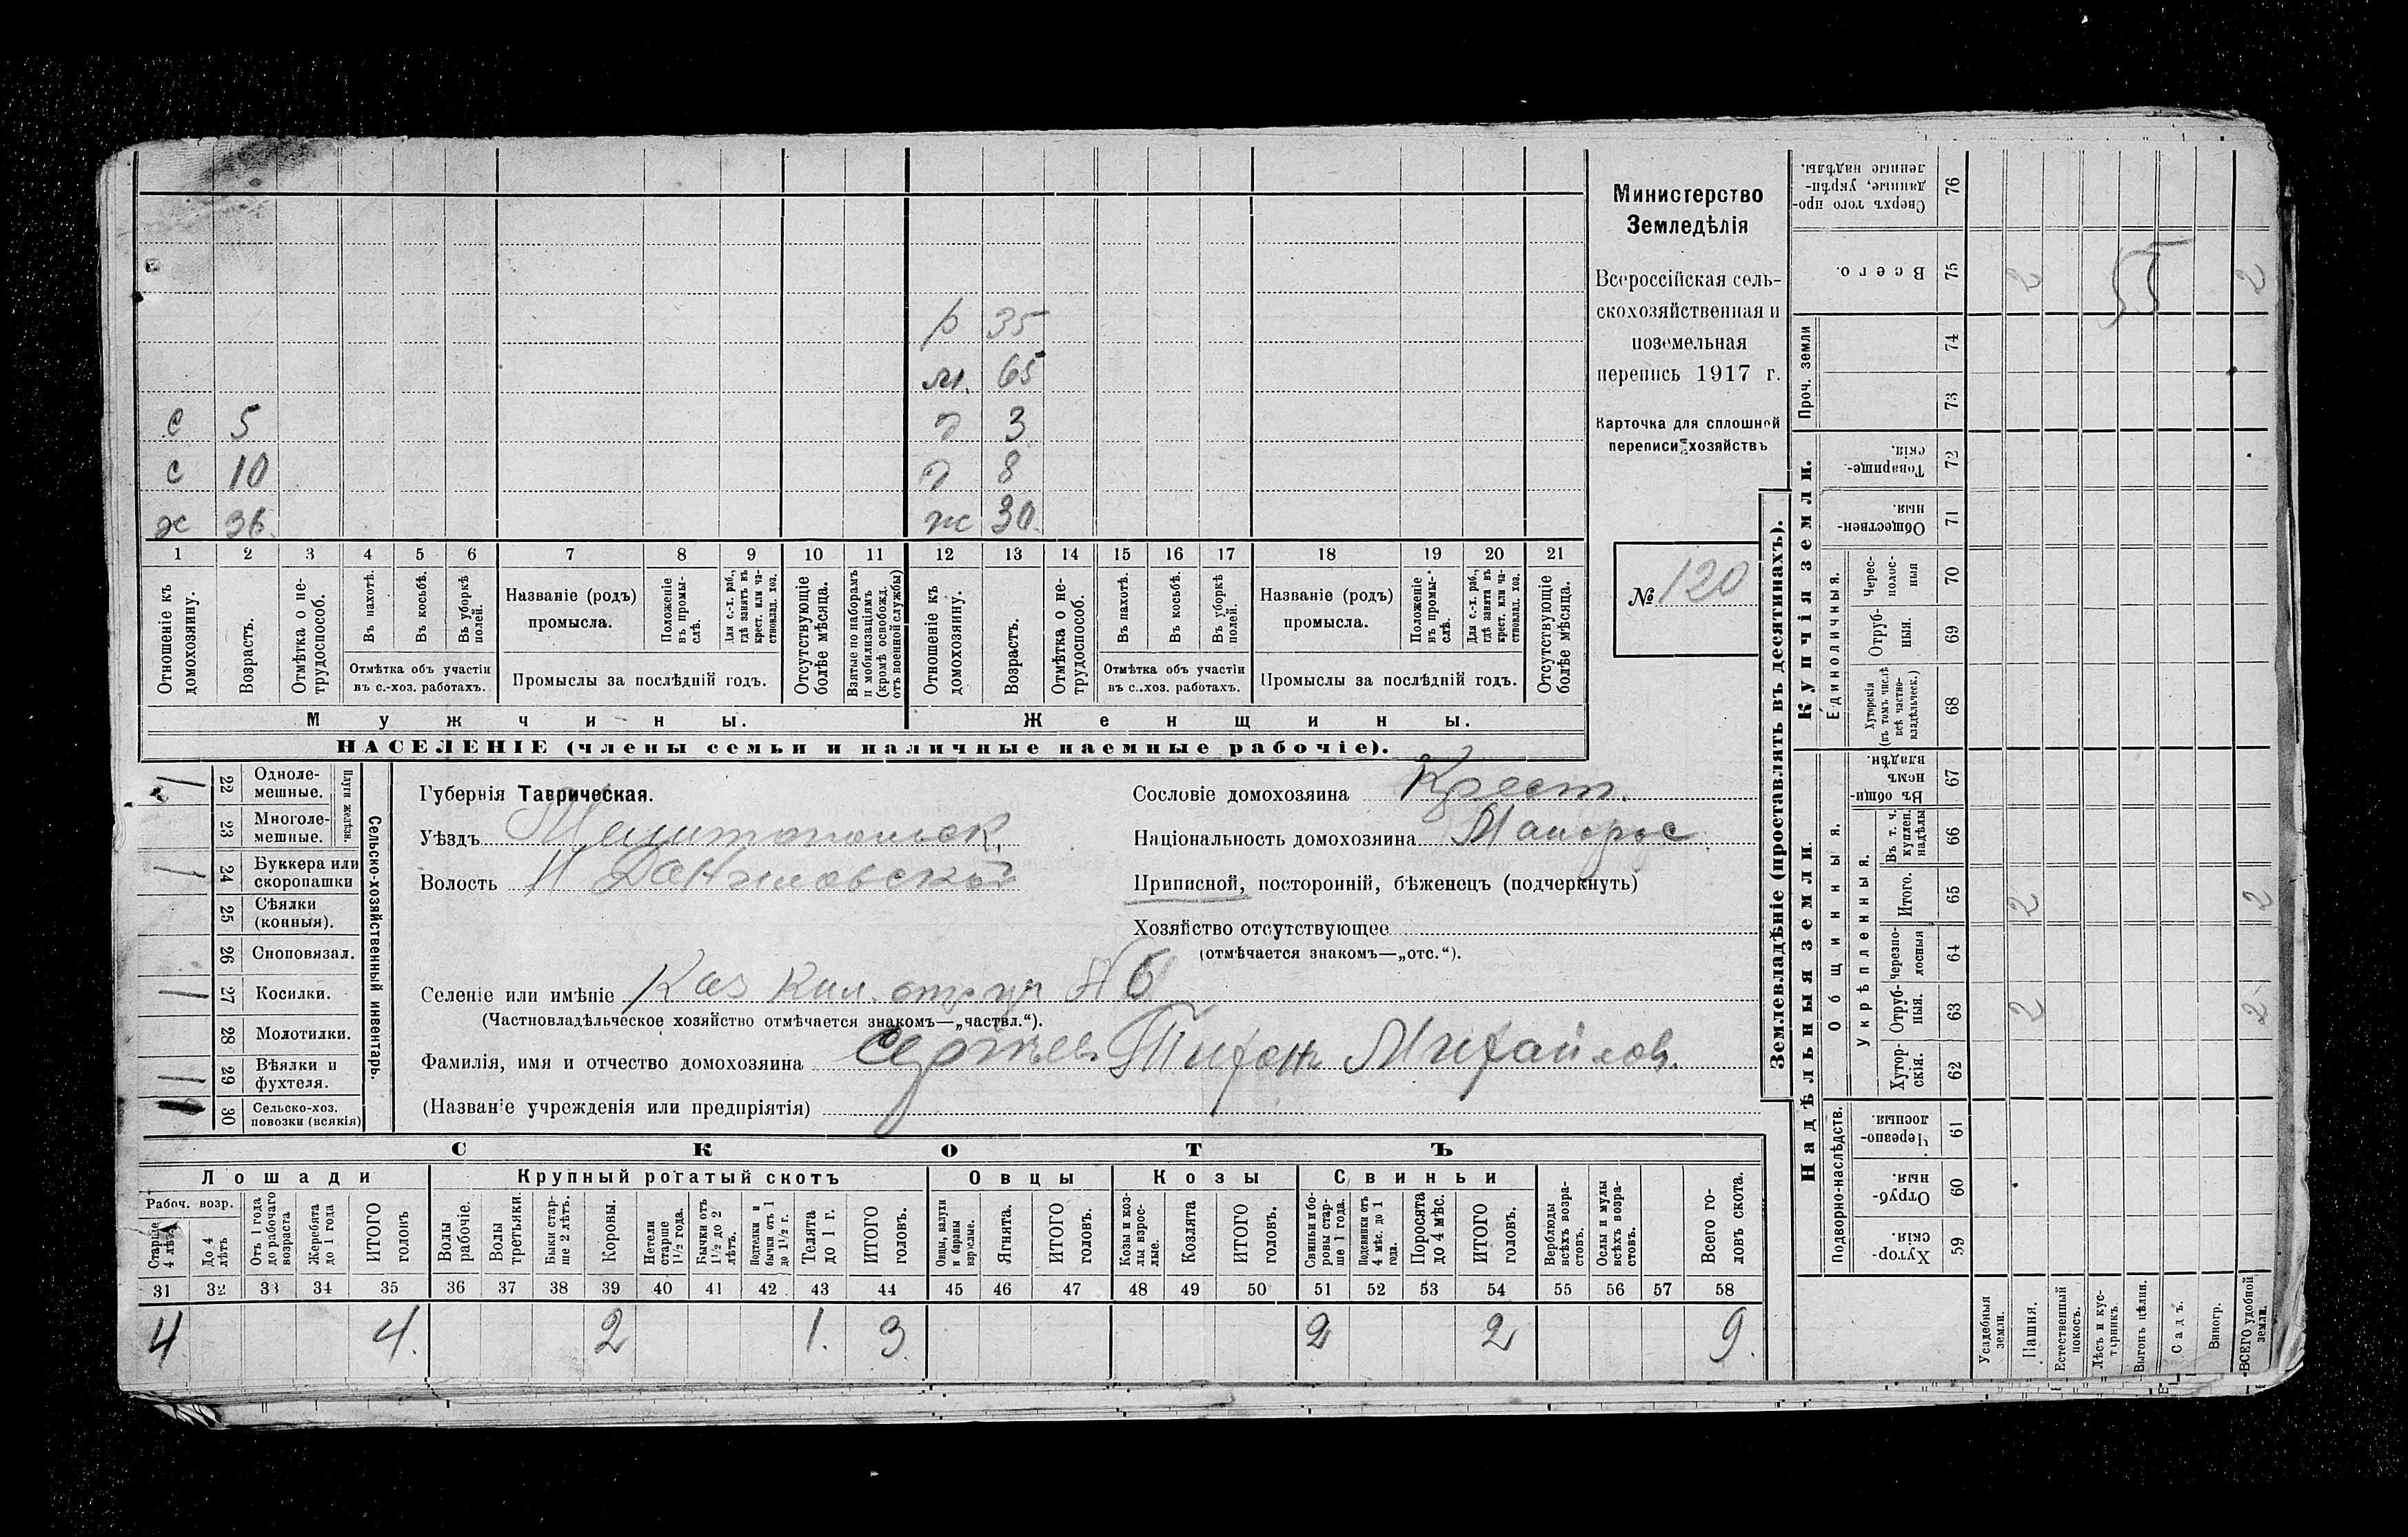 р 35
м. 65
с 5 д 3
с 10 д 8
ж 36. ж 30.
1 2 3 4 5 6 7 8 9 10 11 12 13 14 15 16 17 18 19 20 21
Отношеніе къ домохозяину.
Возрасть.
Отмѣтка о не-трудоспособ.
Въ пахотѣ.
Въ косьбѣ.
Въ уборкѣ полей.
Отмѣтка объ участіи
въ с.-хоз. работахъ.
Названіе (родъ)
промысла.
Положеніе въ промы-слѣ.
Для с.-х. раб., гдѣ занятъ въ крест. или ча-стновлад. хоз.
Промыслы за послѣдній годъ.
Отсутствующіе болѣе мѣсяца.
Взятые по наборамъ и мобилизаціямъ (кромѣ освобожд. отъ военной службы)
Отношеніе къ домохозяину.
Возрастъ.
Отмѣтка о не-трудоспособ.
Въ пахотѣ.
Въ косьбѣ.
Въ уборкѣ полей.
Отмѣтка объ участіи
въ с..хоз. работахъ.
Названіе (родъ)
промысла.
Положеніе въ промы-слѣ.
Для с.-х. раб., гдѣ занята въ крест. или ча-стновлад. хоз.
Промыслы за послѣдній годъ.
Отсутствующіе болѣе мѣсяца.
Мужчины. Женщины.
НАСЕЛЕНІЕ (члены семьи и наличные наемные рабочіе).
Министерство
Земледѣлія
Всероссійская сель-
скохозяйственная и
поземельная
перепись 1917 г.
Карточка для сплошной
переписи хозяйствъ
№ 120
22 Одноле-мешные.
23 Многоле-мешные.
Плуги желѣзн.
24 Буккера или скоропашки
25 Сѣялки (конныя).
26 Сноповязал.
27 Косилки.
28 Молотилки.
29 Вѣялки и фухтеля.
30 Сельско-хоз. повозки (всякія)
Сельско-хозяйственный инвентарь.
Губернія Таврическая.
Уѣздъ Мелитопольск.
Волость Н Даниловской
Сословіе домохозяина Крест.
Національность домохозяина Малорос.
Приписной, посторонній, бѣженецъ (подчеркнуть)
Хозяйство отсутствующее
(отмѣчается знакомъ—„отс.“).
Селеніе или имѣніе Каз №6
(Частновладѣльческое хозяйство отмѣчается знакомъ—„частвл.“).
Фамилія, имя и отчество домохозяина Сергѣев. Тихонъ Михайлов.
(Названіе учрежденія или предпріятія)
СКОТЪ
Лошади Крупный рогатый скотъ Овцы Козы Свиньи
Рабоч. возр.
Старше 4 лѣтъ
До 4 лѣтъ
Отъ 1 года до рабочаго возраста
Жеребята до 1 года
ИТОГО головъ
Волы рабочіе.
Волы третьяки.
Быки стар-ше 2 лѣтъ.
Коровы.
Нетели старше 1 1/2 года.
Бычки отъ 1 1/2 до 2 лѣтъ.
Подтелки и бычки отъ 1 до 1 1/2 г.
Телята до 1 г.
ИТОГО головъ.
Овцы, валухи и бараны взрослые.
Ягнята.
ИТОГО головъ.
Козы и коз-лы взрос-лые.
Козлята
ИТОГО головъ.
Свиньи и бо-ровы стар-ше 1 года.
Подсвинки отъ 4 мѣс. до 1 года.
Поросята до 4 мѣс.
ИТОГО головъ.
Верблюды всѣхъ возра-стовъ.
Ослы и мулы всѣхъ возра-стовъ.
Всего го-ловъ скота.
31 32 33 34 35 36 37 38 39 40 41 42 43 44 45 46 47 48 49 50 51 52 53 54 55 56 57 58
4 4. 2 1. 3 2 2 9.
Землевладѣніе (проставлять въ десятинахъ).
Надѣльныя земли. Купчія земли. Проч. земли
Подворно-наслѣдств.
Общинныя.
Укрѣпленныя.
Единоличныя.
59 Хутор-скія.
60 Отруб-ныя.
61 Черезпо-лосныя
62 Хутор-скія.
63 Отруб-ныя. 2 2
64 Черезпо-лосныя
65 Итого. 2 2
66 Въ т. ч. куплен. надѣлы
67 Въ общин-номъ владѣн.
68 Хуторскія (въ томъ числѣ всѣ частно-владѣльческ.)
69 Отруб-ныя.
70 Черес-полос-ныя
71 Обществен-ныя.
72 Товарище-скія.
73
74
75 Всего. 2 55 2
76 Сверхъ того про-данные, укрѣп-ленные надѣлы.
Усадебныя земли.
Пашня.
Естественный покосъ.
Лѣсъ и кус-тарникъ.
Выгонъ цѣлин.
Садъ.
Виногр.
ВСЕГО удобной земли.